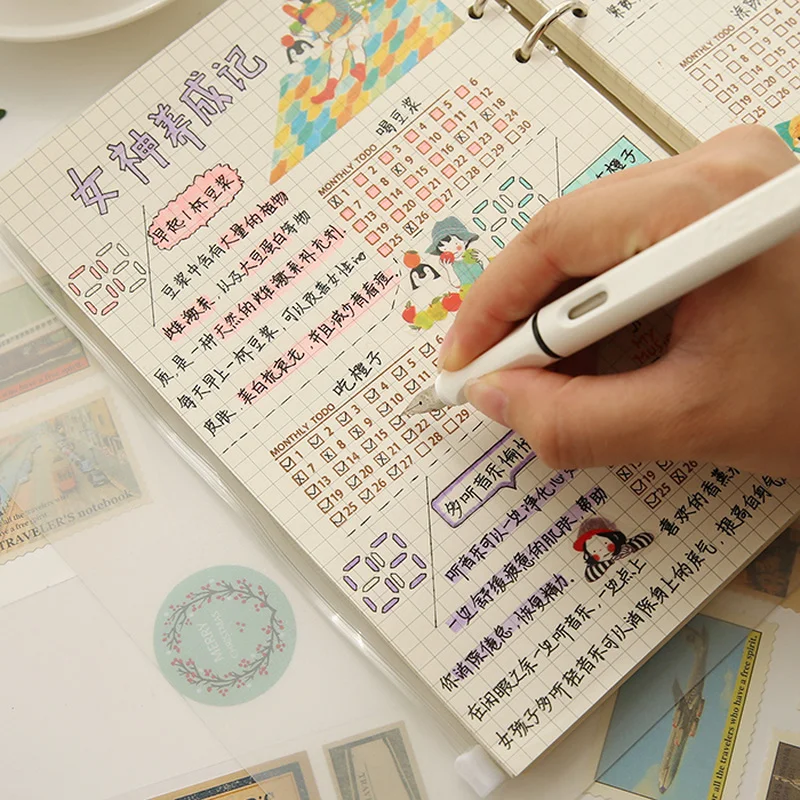 女神养成记
早起1杯豆浆
豆浆中含有大量的植物
雌激素，以及大豆蛋白等物
质，是一种天然的雌激素补充剂．
每天早上一杯豆浆，可以改善女性的
皮肤，美白抗衰老，并且减少青春痘．
喝豆浆
MONTHLY TODO
1 2 3 4 5 6
7 8 9 10 11 12
13 14 15 16 17 18
19 20 21 22 23 24
25 26 27 28 29 30
橙子
吃橙子
MONTHLY TODO
1 2 3 4 5 6
7 8 9 10 11
13 14 15 16
19 20 21 22
25 26 27 28 29
多听音乐愉
听音乐可以一边净化心
一边舒缓疲惫的肌肤，帮助
你消除倦怠，恢复精力．
在闲暇之余一边听音乐，一边点上
喜欢的香薰
女孩子多听轻音乐可以消除身上的戾气，提高自身气
MONTHLY TODO
1 2 3
7 8 9
13 14 15
19 20 21
25 26
MERRY
CHRISTMAS
TRAVELER'S notebook
all the travelers who have a free spirit.